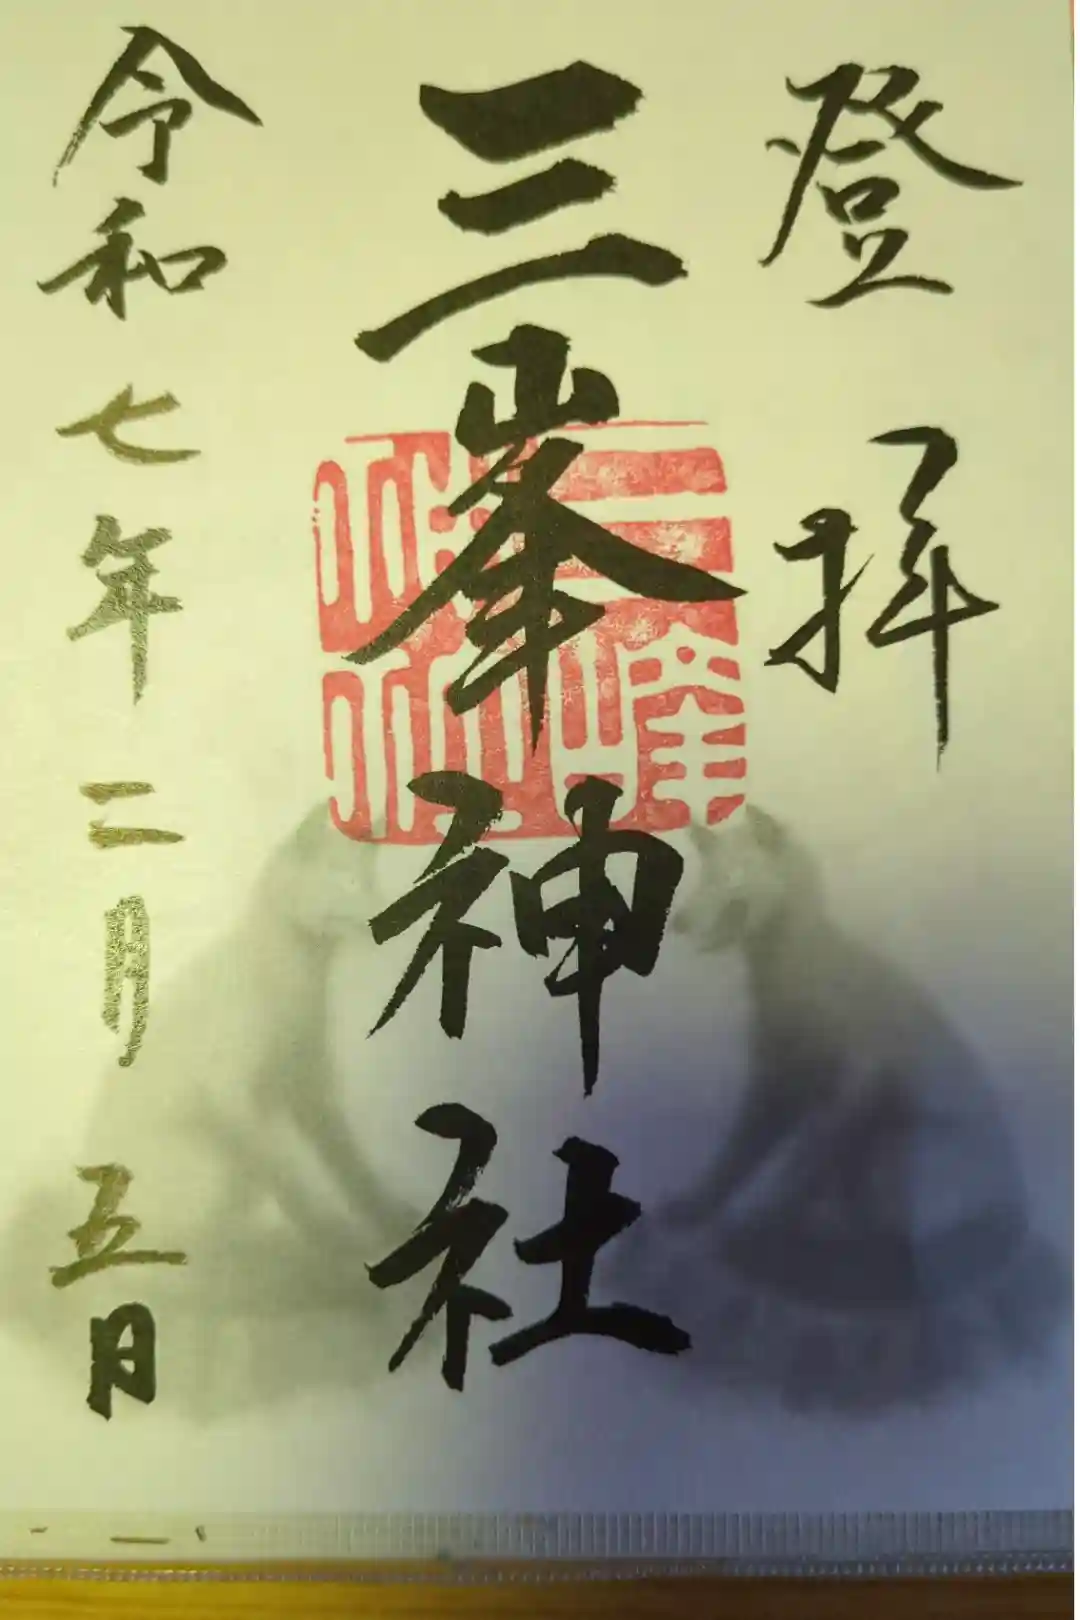 登拝
三峯神社
三峯神社
令和七年二月五日